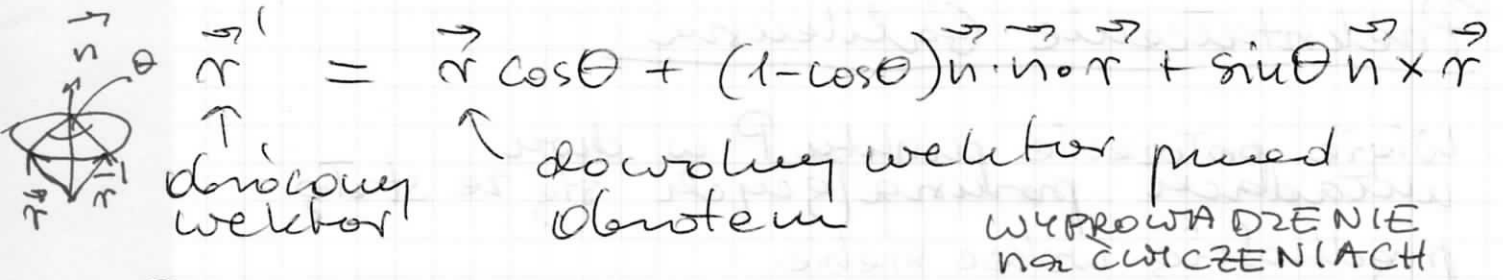 n⃗
θ r⃗' = r⃗ cosθ + (1-cosθ) n⃗·n⃗∘r⃗ + sinθ n⃗ × r⃗
r⃗ r⃗' obrócony dowolny wektor przed
wektor obrotem WYPROWADZENIE
na ĆWICZENIACH